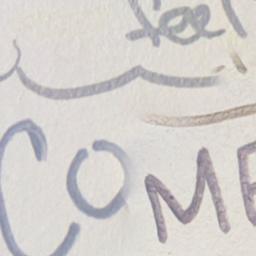 feel
COME